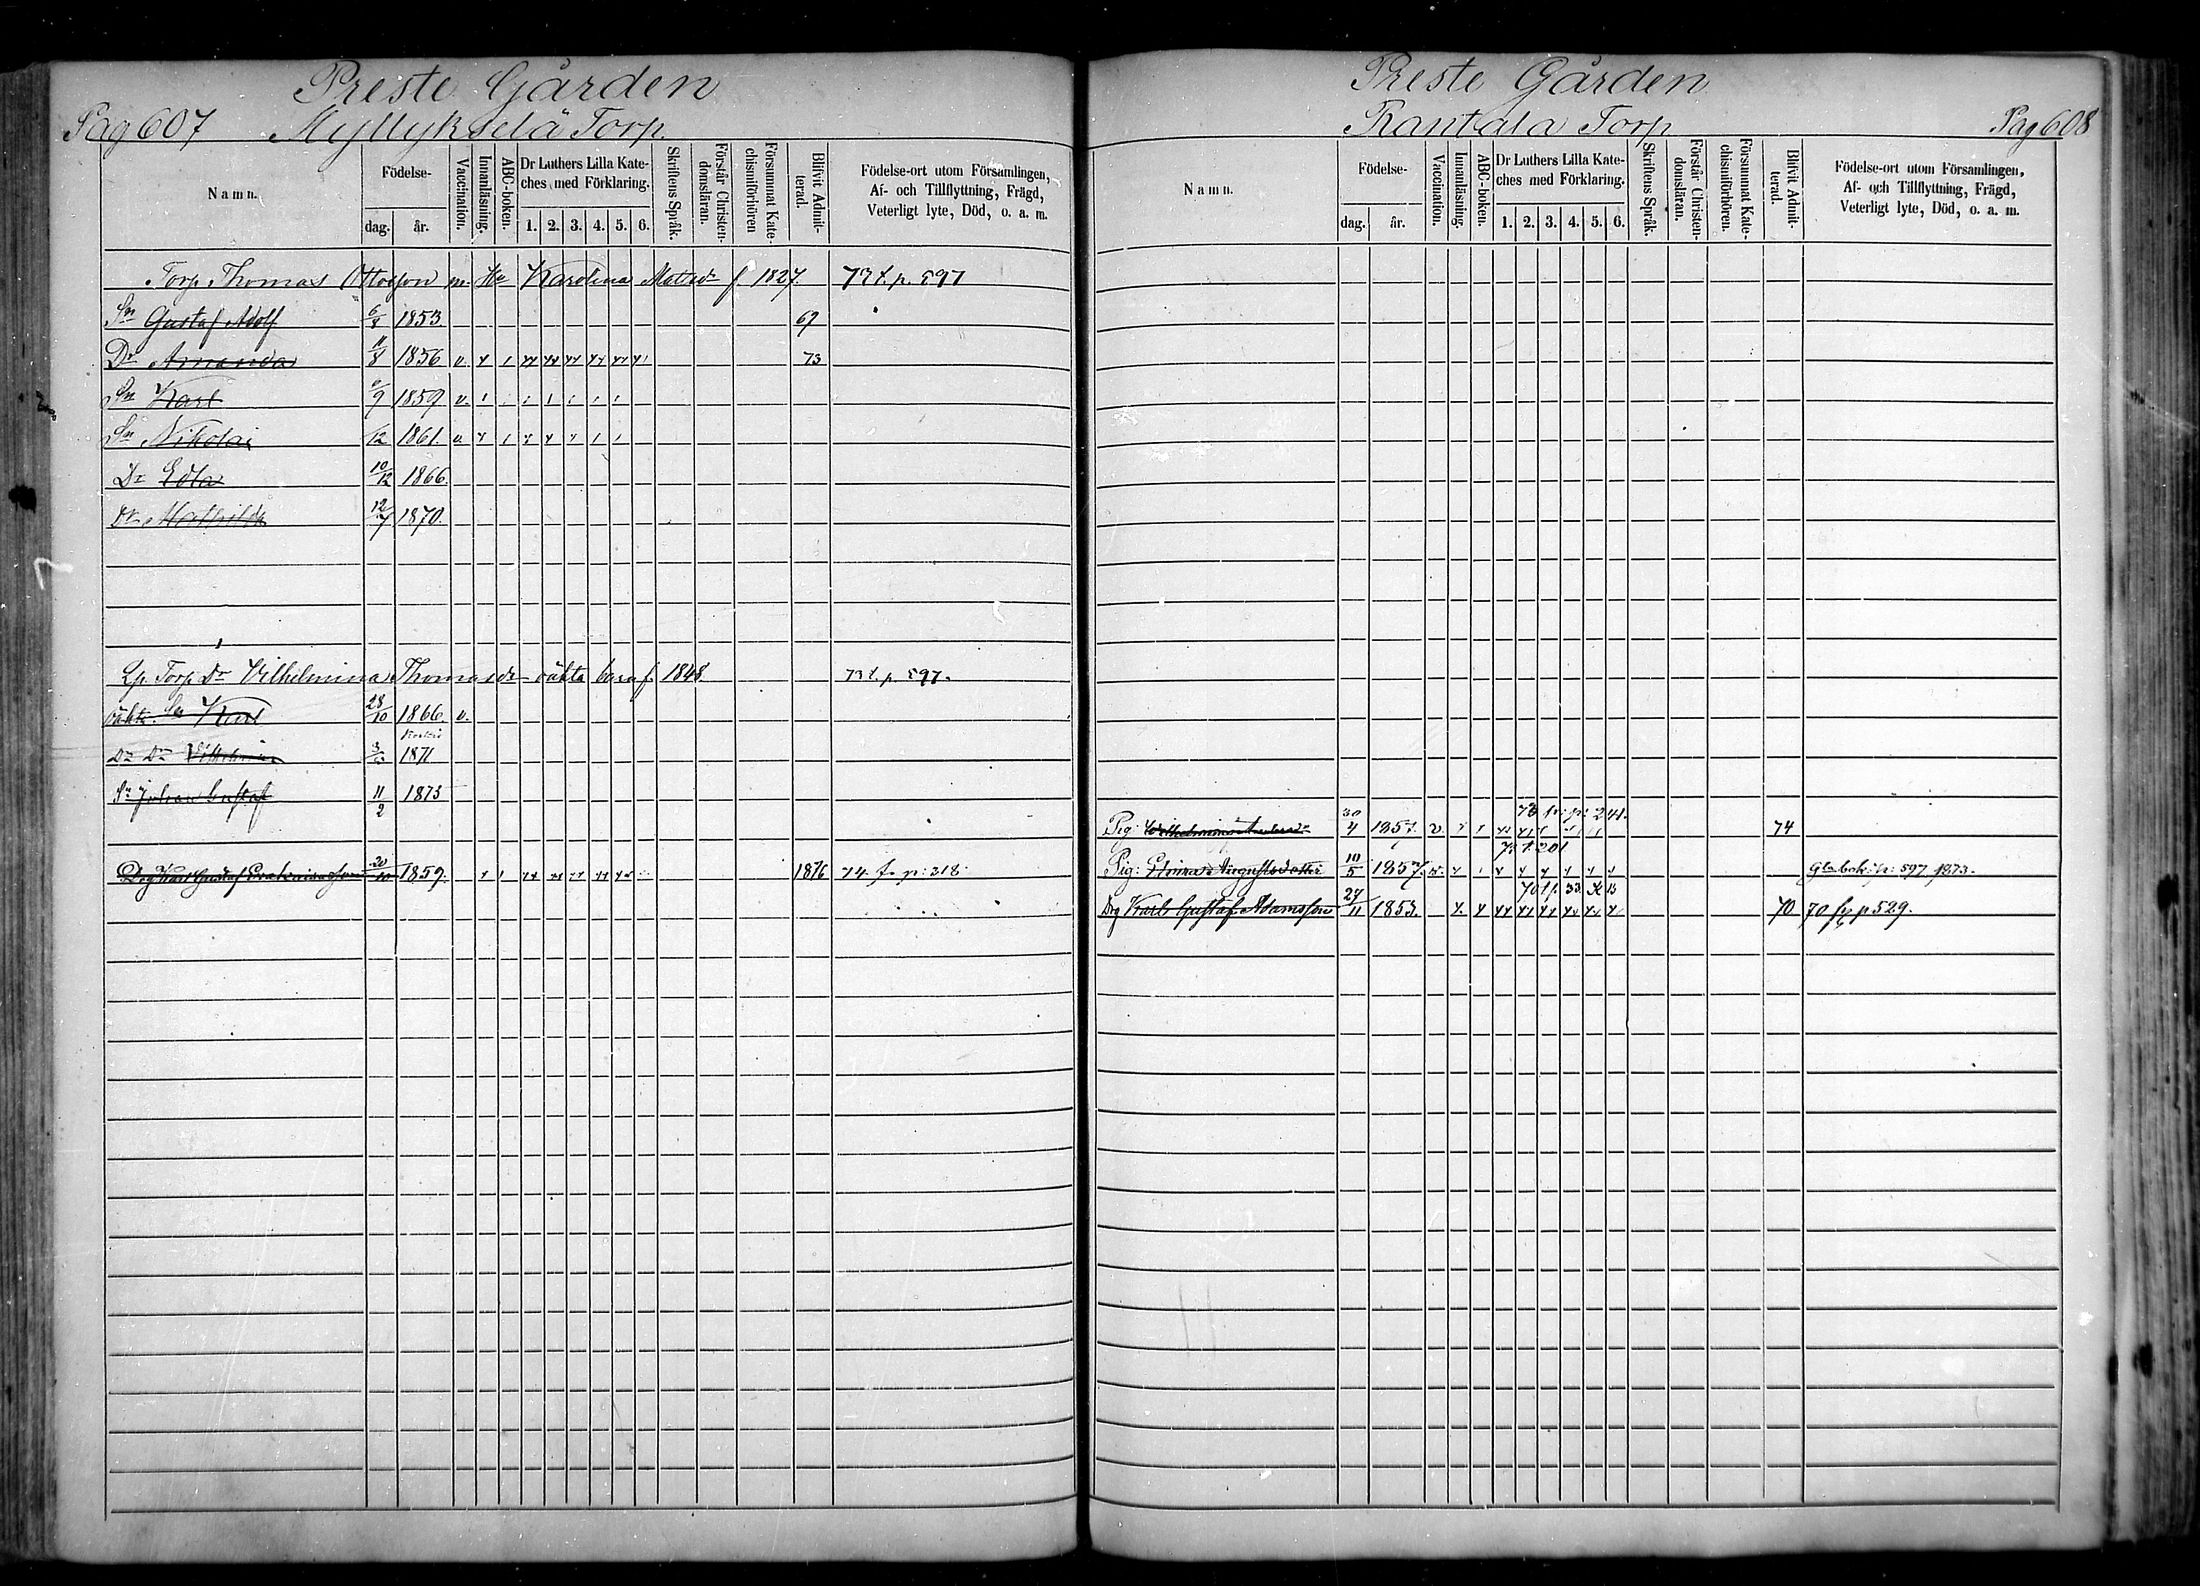 Preste Gården
Pag 607 Myllykselä Torp.
Namn.
Födelse-
dag. år.
Vaccination.
Innanläsning.
ABC-boken.
Dr Luthers Lilla Kate-
ches med Förklaring.
1. 2. 3. 4. 5. 6.
Skriftens Språk.
Förstår Christen-
domsläran.
Försummat Kate-
chismiförhören
Blifvit Admit-
terad.
Födelse-ort utom Församlingen,
Af- och Tillflyttning, Frägd,
Veterligt lyte, Död, o. a. m.
Torp Thomas Ottosson m. Hu Karolina Matsdr f. 1827. 73 t. p. 597
Sn Gustaf Adolf 1853. 69
Dr Amanda 11/8 1856 v. 73
Sn Karl 1859 v.
Sn Nikolai 1861. v.
Dr Edla 10/12 1866.
Dr Mathilda 12/7 1870.
Lp. Torp. Dr Vilhelmina Thomasdr oäkta barn f. 1848. 73 t. p. 597.
oäkta Sn Karl 28/10 1866. v.
Dr Dr Vilhelmina 1871
Sn Johan Gustaf 11/2 1873
Drg Karl Gustaf 20/10 1859. 1876 74 f. p: 318.
Preste Gården
Rantala Torp Pag 608
Namn.
Födelse-
dag. år.
Vaccination.
Innanläsning.
ABC-boken.
Dr Luthers Lilla Kate-
ches med Förklaring.
1. 2. 3. 4. 5. 6.
Skriftens Språk.
Förstår Christen-
domsläran.
Försummat Kate-
chismiförhören.
Blifvit Admit-
terad.
Födelse-ort utom Församlingen,
Af- och Tillflyttning, Frägd,
Veterligt lyte, Död, o. a. m.
p: 241.
Pig: Wilhelmina 30/4 1857. v. 74
201
Pig: Augustsdotter 10/5 1857. v. Gla bok. p: 597 1873.
Drg Karl Gustaf Adamsson 27/11 1853. 70 70 p 529.